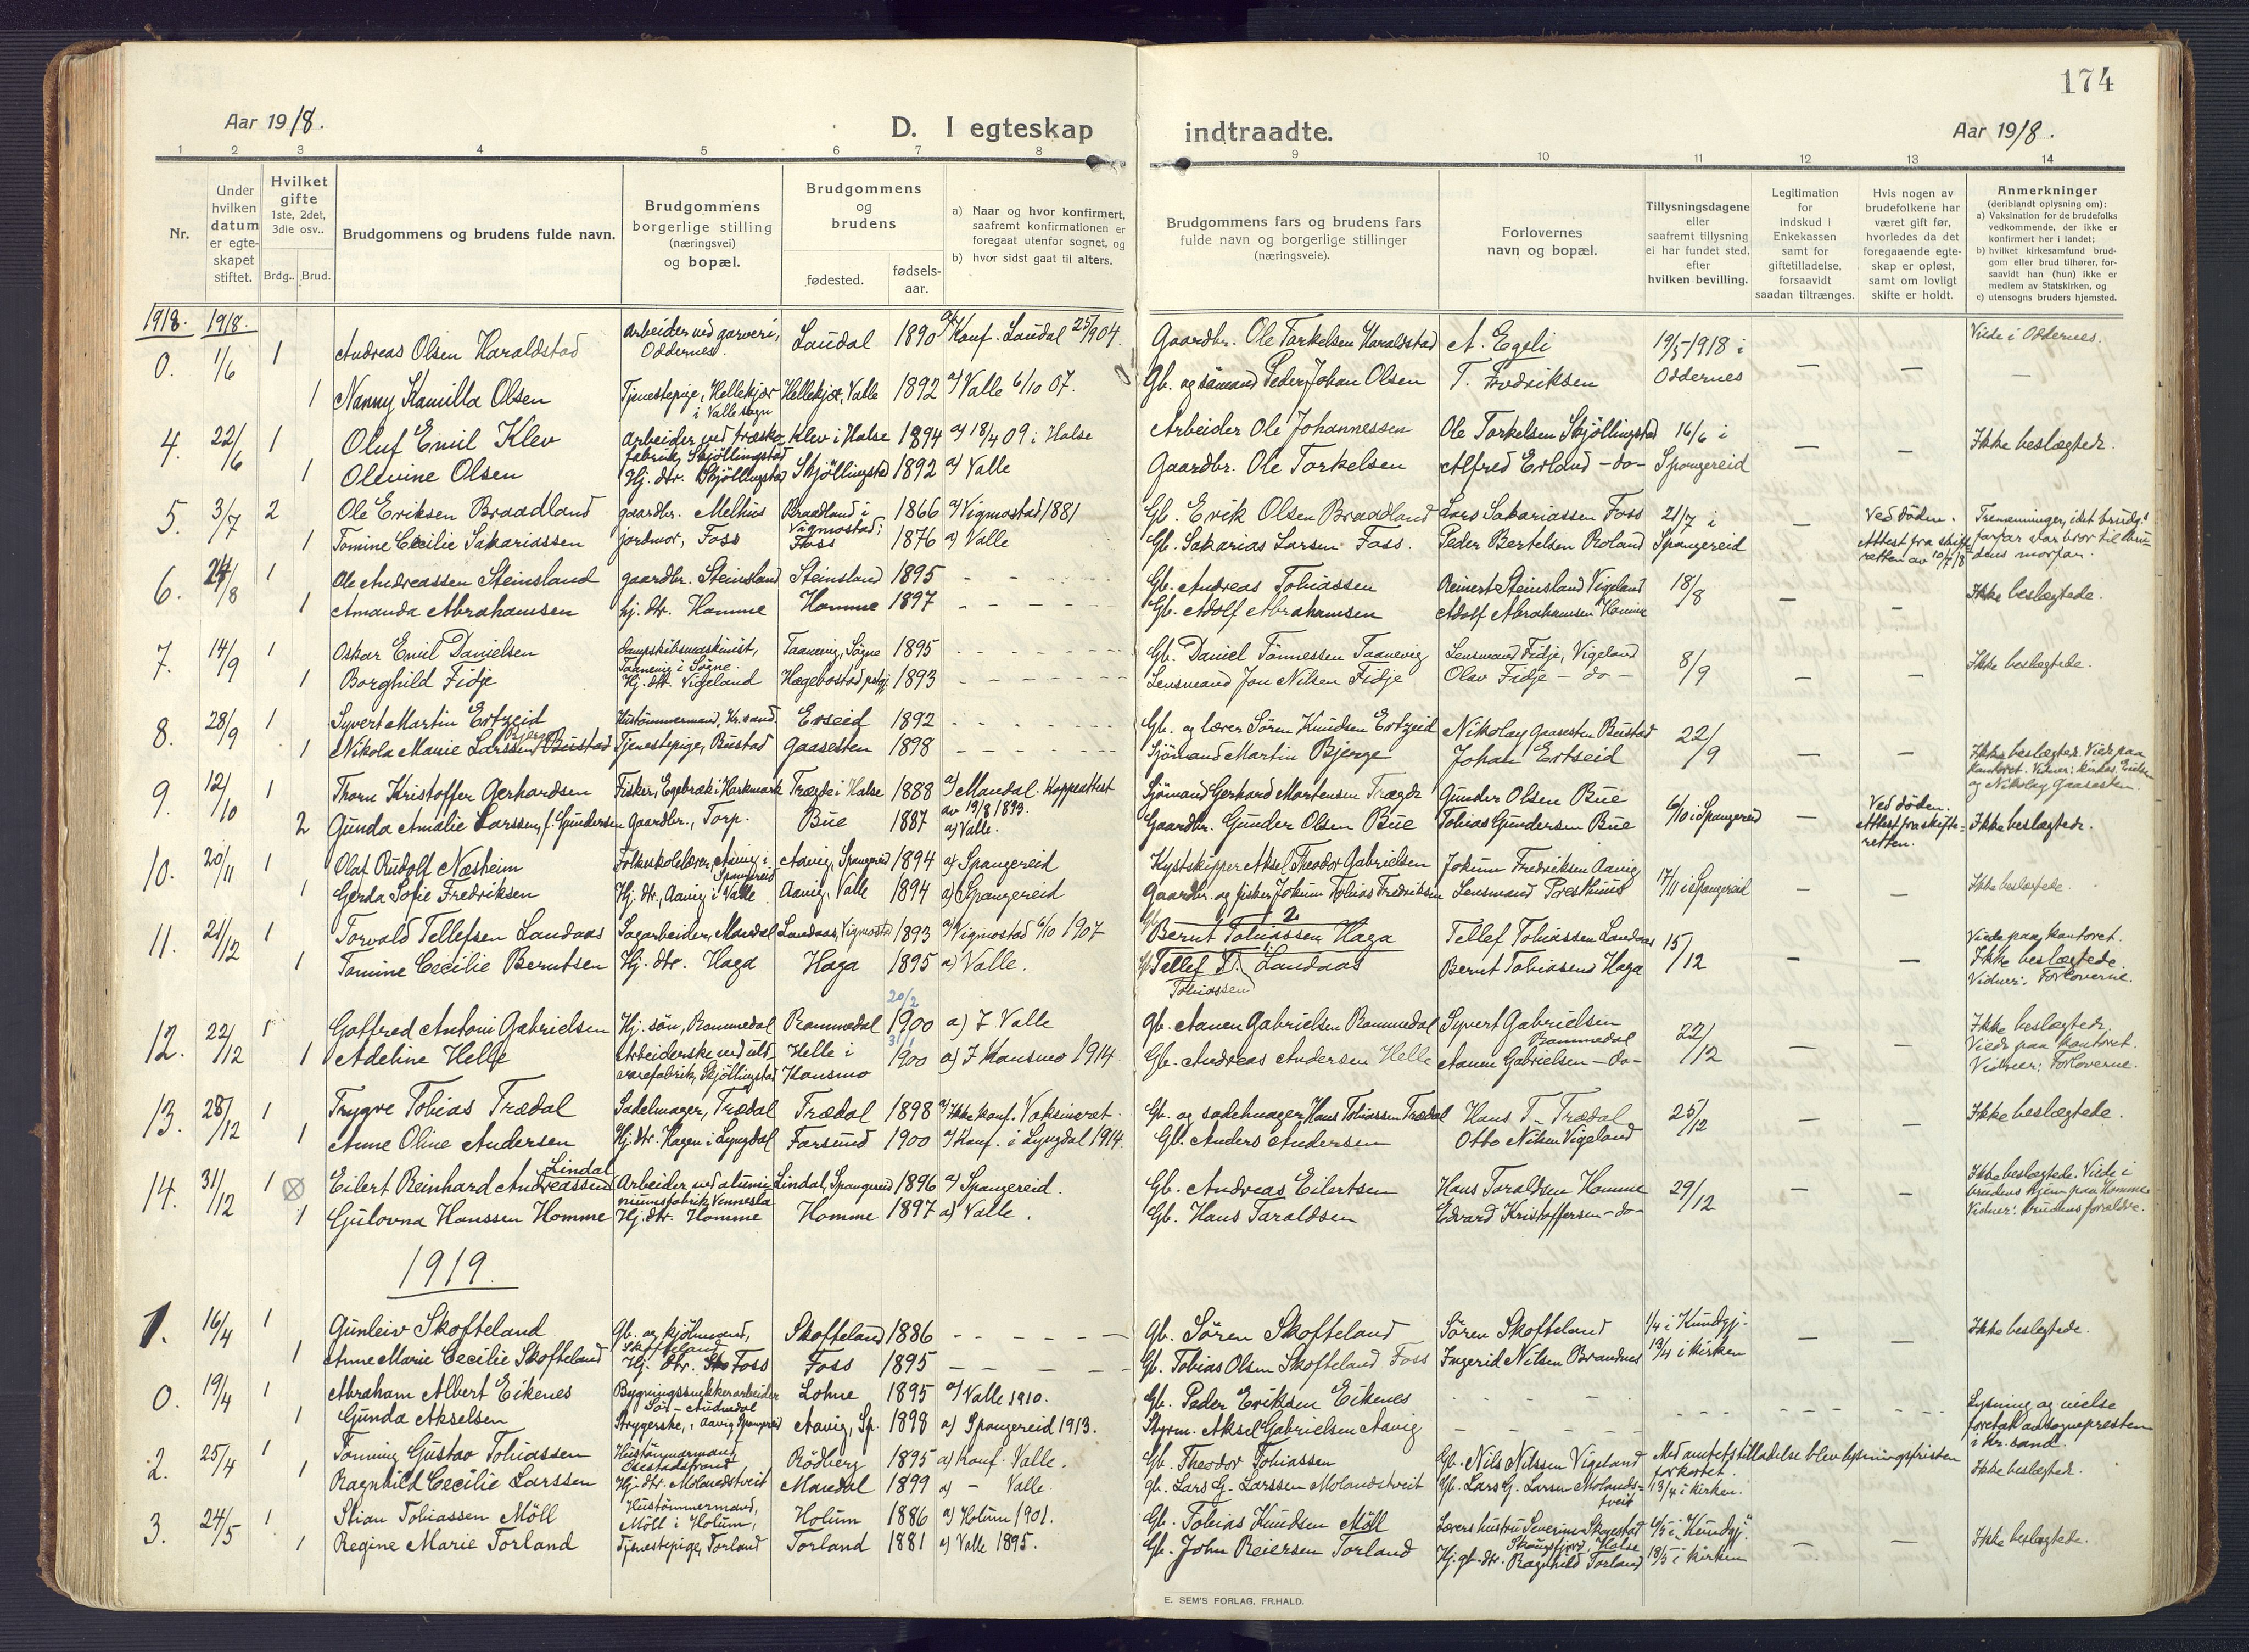 174
Aar 1918.
D. I egteskap indtraadte.
Aar 1918.
1 2 3 4 5 6 7 8 9 10 11 12 13 14
Nr.
Under hvilken datum er egteskapet stiftet.
Hvilket gifte 1ste, 2det, 3die osv..
Brdg.. Brud.
Brudgommens og brudens fulde navn.
Brudgommens borgerlige stilling (næringsvei) og bopæl.
Brudgommens og brudens
fødested.
fødsels-aar.
a) Naar og hvor konfirmert, saafremt konfirmationen er foregaat utenfor sognet, og
b) hvor sidst gaat til alters.
Brudgommens fars og brudens fars fulde navn og borgerlige stillinger (næringsveie).
Forlovernes navn og bopæl.
Tillysningsdagene eller saafremt tillysning ei har fundet sted, efter hvilken bevilling.
Legitimation for indskud i Enkekassen samt for giftetilladelse, forsaavidt saadan tiltrænges.
Hvis nogen av brudefolkene har været gift før, hvorledes da det foregaaende egteskap er opløst, samt om lovligt skifte er holdt.
Anmerkninger (deriblandt oplysning om):
a) Vaksination for de brudefolks vedkommende, der ikke er konfirmert her i landet;
b) hvilket kirkesamfund brudgom eller brud tilhører, forsaavidt han (hun) ikke er medlem av Statskirken, og
c) utensogns bruders hjemsted.
1918. 1918.
0. 1/6 1 Andreas Olsen Haraldstad Arbeider ved garveri, Oddernes. Laudal 1890 a) Konf. Laudal 25/9 04. Gaardbr. Ole Torkelsen Haraldstad A. Egeli 19/5 1918 i Oddernes — — Viede i Oddernes.
1 Nanny Kamilla Olsen Tjenestepige, Hellekjær i Valle sogn Hellekjær, Valle 1892 a) Valle 6/10 07. Gb. og sømand Peder Johan Olsen T. Fredriksen
4. 22/6 1 Oluf Emil Klev Arbeider ved træskofabrik, Skjöllingstad Klev i Halse 1894 a) 18/4 09 i Halse Arbeider Ole Johannessen Ole Torkelsen Skjöllingstad 16/6 i Spangereid — — Ikke beslegtede.
1 Olevine Olsen Hj. dtr. Skjöllingstad Skjöllingstad 1892 a) Valle Gaardbr. Ole Torkelsen Alfred Erland -do-
5. 3/7 2 Ole Eriksen Braadland gaardbr. Melhus Braadland i Vigmostad; 1866 a) Vigmostad 1881 Gb. Erik Olsen Braadland Lars Sakariassen Foss 21/7 i Spangereid — Ved döden. Attest fra skifteretten av 10/7 18 Tremenninger, idet brudg.s farfar var bror til brudens morfar.
1 Tomine Cecilie Sakariassen jordmor, Foss Foss 1876 a) Valle Gb. Sakarias Larsen Foss. Peder Bertelsen Roland
6. 24/8 1 Ole Andreassen Steinsland gaardbr. Steinsland Steinsland 1895 - - - Gb. Andreas Tobiassen Reinert Steinsland Vigeland 18/8 — — Ikke beslegtede.
1 Amanda Abrahamsen hj. dtr. Homme Homme 1897 - - - Gb. Adolf Abrahamsen Adolf Abrahamsen Homme
7. 14/9 1 Oskar Emil Danielsen Dampskibsmaskinist, Taanevig i Søgne. Taanevig, Søgne 1895 - - - Gb. Daniel Tönnessen Taanevig Lensmand Fidje, Vigeland 8/9 — — Ikke beslegtede.
1 Borghild Fidje Hj. dtr. Vigeland Hægebostad 1893 - - - Lensmand Jon Nilsen Fidje Olav Fidje - do -
8. 28/9 1 Syvert Martin Ertzeid Hustömmermand, Kr.sand. Erseid 1892 - - - Gb. og lærer Sören Knudsen Ertzeid Nikolay Gaasesten Bustad 22/9 — — Ikke beslegtede. Viede paa kontoret.
1 Nikola Marie Larssen Bjerge Bustad Tjenestepige, Bustad Gaasesten 1898 - - - Sjömand Martin Bjerge Johan Ertseid og Nikolay Gaasesten.
9. 12/10 1 Thorn Kristoffer Gerhardsen Fisker, Egebræk i Harkmark Trægde i Halse 1888 a) Mandal. Koppeattest av 19/8 1893. Sjömand Gerhard Mortensen Trægde Gunder Olsen Bue 6/10 i Spangereid — Ved döden. Attest fra skifteretten. Ikke beslegtede.
2 Gunda Amalie Larssen, f. Gundersen Gaardbr., Torp. Bue 1887 a) Valle. Gaardbr. Gunder Olsen Bue Tobias Gundersen Bue
10. 20/11 1 Olaf Rudolf Næsheim Folkeskolelærer, Aavig i Spangereid Aavig, Spangereid 1894 a) Spangereid Kystskipper Aksel Theodor Gabrielsen Jokum Fredriksen Aavig 17/11 i Spangereid — — Ikke beslegtede.
1 Gerda Sofie Fredriksen Hj. dtr., Aavig i Valle Aavig, Valle 1894 a) Spangereid Gaardbr. og fisker Jokum Tobias Fredriksen Lensmand Presthus
11. 21/12 1 Torvald Tellefsen Landaas Sagarbeider, Mandal Landaas, Vigmostad 1893 a) Vigmostad 6/10 1907 Gb. Bernt Tobiassen Haga 2 Tellef Tobiassen Landaas 15/12 — — Viede paa kontoret. Ikke beslegtede. Vidner: Forloverne.
1 Tomine Cecilie Berntsen Hj. dtr. Haga Haga 1895 a) Valle. Gb. Tellef T. Landaas Tobiassen Bernt Tobiassen Haga
12. 22/12 1 Gotfred Antoni Gabrielsen Hj. sön, Rammedal Rammedal 20/2 1900 a) I Valle Gb. Aanen Gabrielsen Rammedal Syvert Gabrielsen Rammedal 22/12 — — Ikke beslegtede. Viede paa kontoret. Vidner: Forloverne.
1 Adeline Helle Arbeiderske ved uldvarefabrik, Skjöllingstad Helle i Konsmo 31/1 1900 a) I Konsmo 1914. Gb. Andreas Andersen Helle Aanen Gabrielsen -do-
13. 28/12 1 Trygve Tobias Trædal Sadelmager, Trædal Trædal 1898 a) Ikke konf. Vaksineret. Gb. og sadelmager Hans Tobiassen Trædal Hans T. Trædal 25/12 — — Ikke beslegtede.
1 Anne Oline Andersen Hj. dtr. Hagen i Lyngdal Farsund 1900 a) Konf. i Lyngdal 1914. Gb. Anders Andersen Otto Nilsen Vigeland
14. 31/12 1 Eilert Reinhard Andreassen Lindal Arbeider ved aluminiumsfabrik, Vennesla Lindal, Spangereid 1896 a) Spangereid. Gb. Andreas Eilertsen Hans Taraldsen Homme 29/12 — — Ikke beslegtede. Viede i brudens hjem paa Homme. Vidner: brudens forældre.
1 Gulovna Hanssen Homme Hj. dtr. Homme Homme 1897 a) Valle. Gb. Hans Taraldsen Edvard Kristoffersen -do-
1919.
1. 16/4 1 Gunleiv Skofteland Gb. og kjölmand, Skofteland Skofteland 1886 - - - Gb. Sören Skofteland Sören Skofteland 1/4 i Kundgj. — — Ikke beslegtede.
1 Anne Marie Cecilie Skofteland Hj. dtr. Foss Foss 1895 - - - Gb. Tobias Olsen Skofteland Foss Ingerid Nilsen Brandnes 13/4 i kirken
0. 19/4 1 Abraham Albert Eikenes Bygningssnekkerarbeider Sör-Audnedal Lohne 1895 a) Valle 1910. Gb. Peder Eriksen Eikenes - - - Lysning og vielse foretat av sognepresten i Kr.sand.
1 Gunda Akselsen Strygerske, Aavig Spangereid Aavig, Sp. 1898 a) Spangereid 1913. Styrm. Aksel Gabrielsen Aavig
2. 25/4 1 Tönning Gustav Tobiassen Hustömmermand, Rödberg 1895 a) Konf. Valle. Gb. Theodor Tobiassen Gb. Nils Nilssen Vigeland Med amtets tilladelse blev lysningsfristen forkortet. Ikke beslegtede.
1 Ragnhild Cecilie Larssen Hj. dtr. Molandstveit Mandal 1899 a) - Valle. Gb. Lars G. Larssen Molandstveit Gb. Lars G. Larsen Molandstveit 13/4 i kirken.
3. 24/5 1 Stian Tobiassen Möll Hustömmermand, Möll i Holum, Holum 1886 a) Holum 1901. Gb. Tobias Knudsen Möll Lærers hustru Severine Skagestad Skougsfjord, Halse 6/5 i "Kundgj." — — Ikke beslegtede.
1 Regine Marie Torland Tjenestepige, Torland Torland 1881 a) Valle 1895. Gb. John Reiersen Torland Hj. gb. dtr. Ragnhild Torland 18/5 i kirken
E. SEM'S FORLAG, FR.HALD.